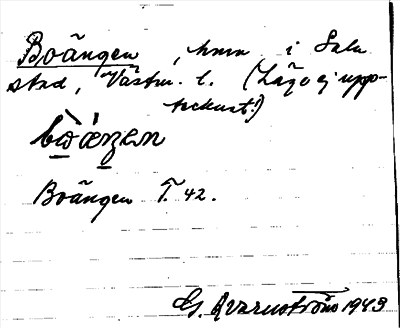 Boängen, hmn i Sala
stad, Västm. l. (Läge ej upp-
tecknat!)
Boängen T. 42.
G. Qvarnström 1943